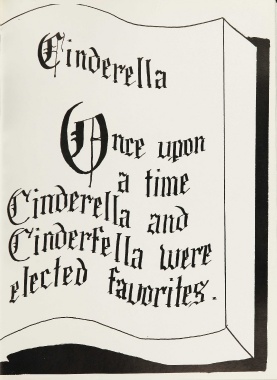 Cinderella
Once upon
a time
Cinderella and
Cinderfella were
elected favorites.